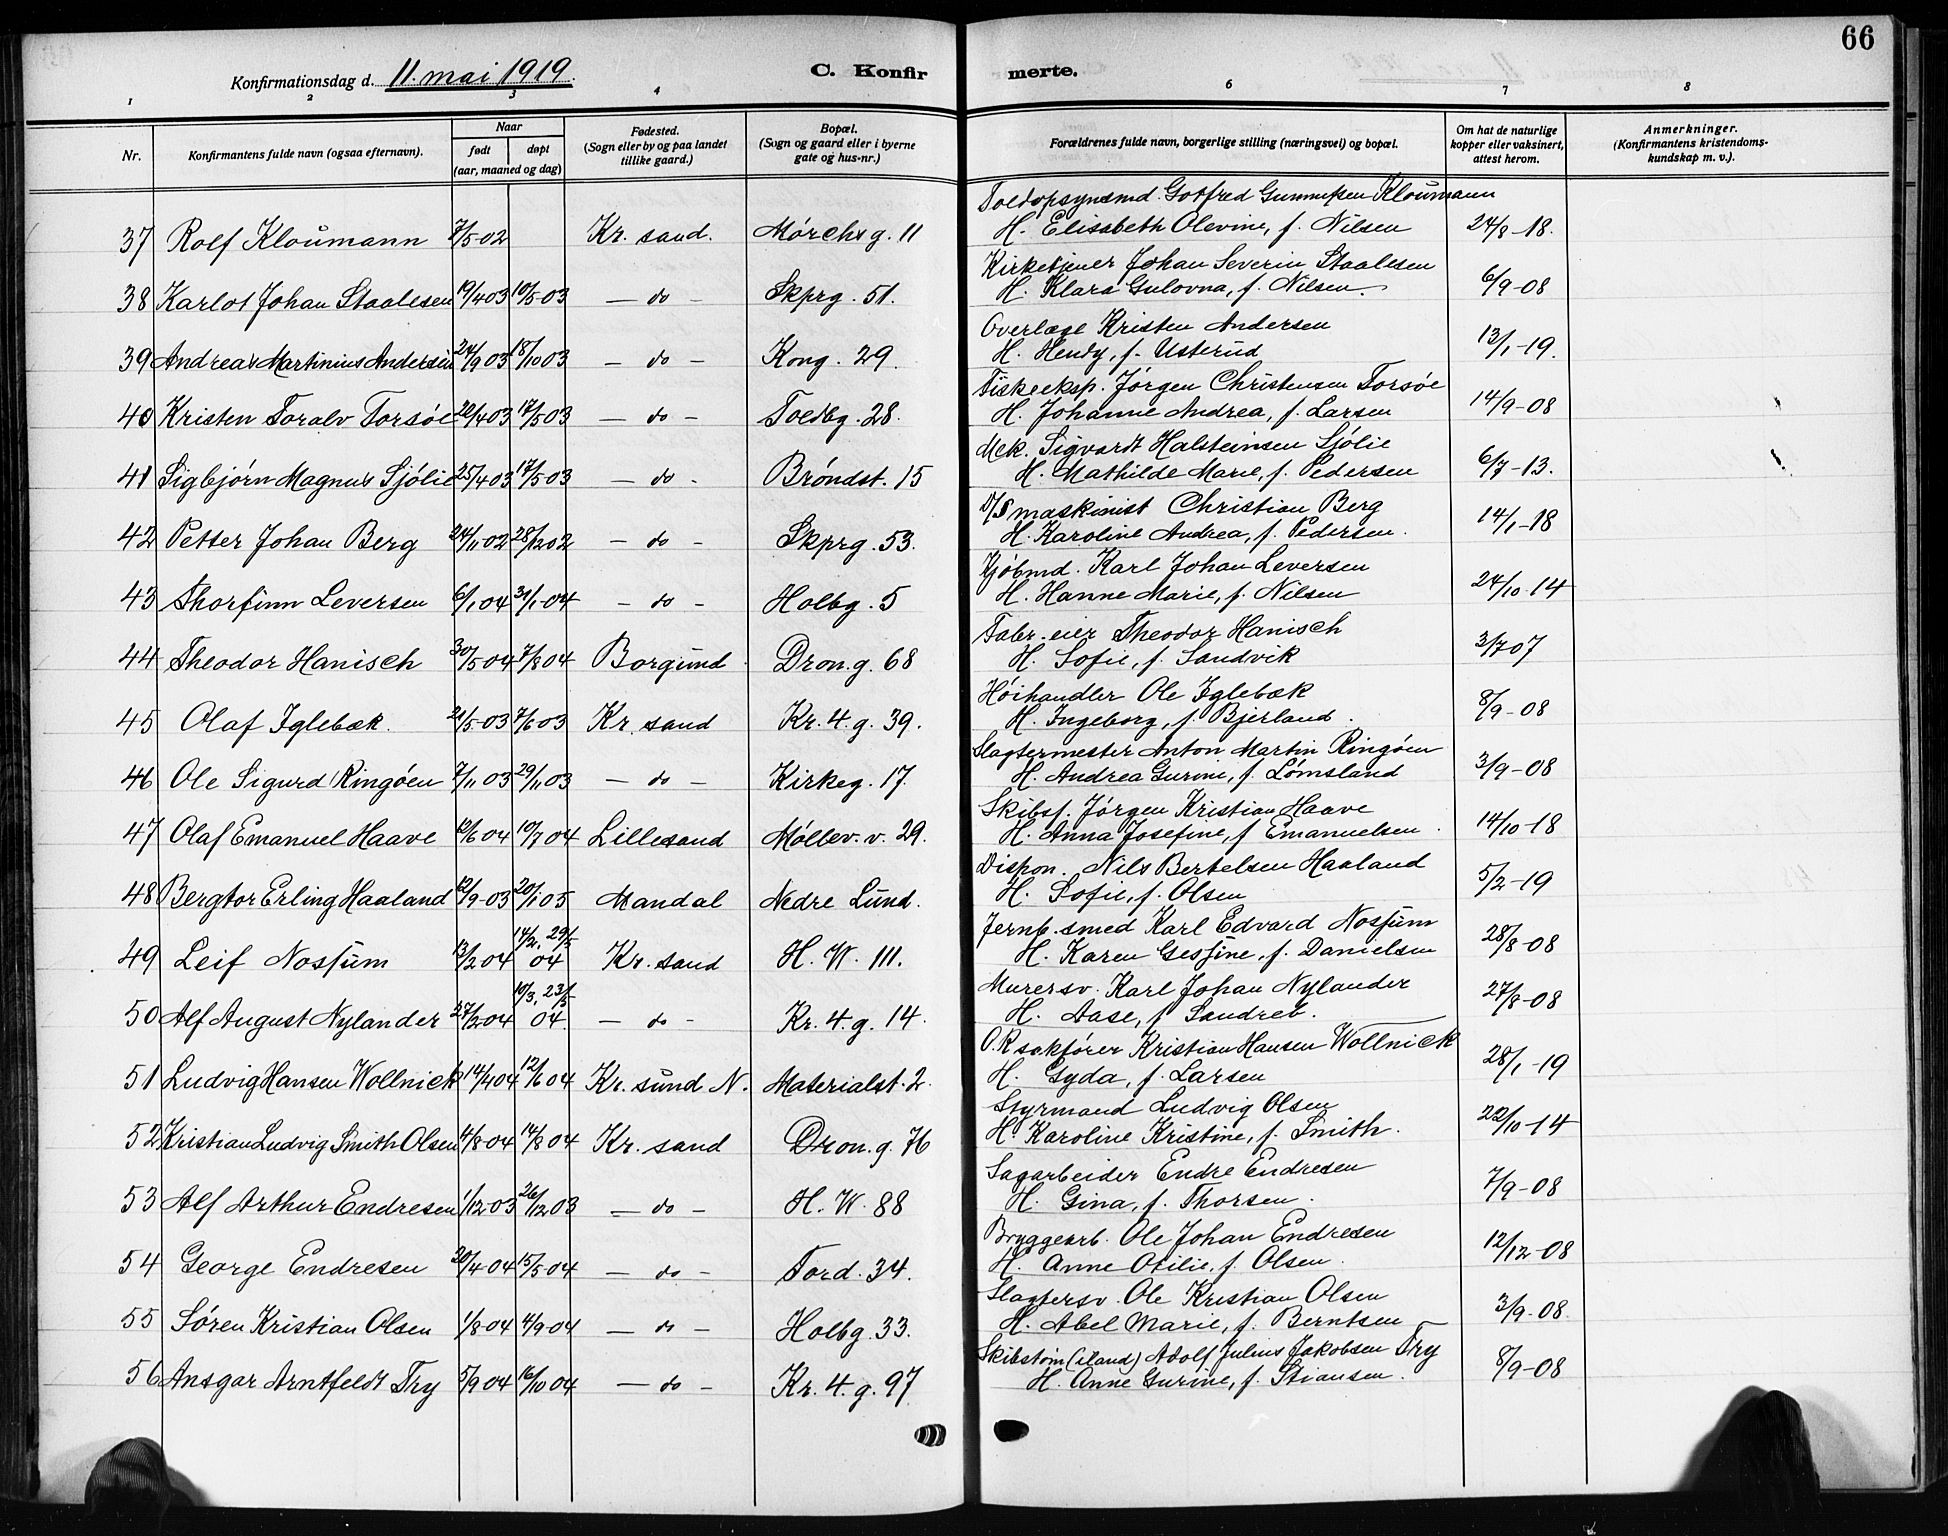 66
Konfirmationsdag d. 11. mai 1919.
C. Konfir
merte.
1 2 3 4 6 7 8
Nr.
Konfirmantens fulde navn (ogsaa efternavn).
Naar
født
døpt
(aar, maaned og dag)
Fødested.
(Sogn eller by og paa landet
tillike gaard.)
Bopæl.
(Sogn og gaard eller i byerne
gate og hus-nr.)
Forældrenes fulde navn, borgerlige stilling (næringsvei) og bopæl.
Om hat de naturlige
kopper eller vaksinert,
attest herom.
Anmerkninger.
(Konfirmantens kristendoms-
kundskap m. v.).
Toldopsynsmd. Gotfred Gunnufsen Kloumann
37 Rolf Kloumann 7/5-02 Kr. sand. Mórchs g. 11 H. Elisabeth Olevine, f. Nilsen 24/8-18.
Kirketjener Johan Severin Staalesen
38 Karlot Johan Staalesen 19/4 03 10/5-03 — do — Skprg. 51. H. Klara Gulovna, f. Nilsen. 6/9-08
Overlæge Kristen Andersen
39 Andreas Martinius Andersen 24/9 03 18/10 03 — do — Kong. 29. H. Hendy, f. Usterud 13/1-19.
Fiskeeksp. Jórgen Christensen Torsóe
40 Kristen Toralv Torsóe 22/4 03 17/5 03 — do — Toldbg. 28. H. Johanne Andrea, f. Larsen 14/9-08
Mek. Sigvardt Halsteinsen Sjólie
41 Sigbjórn Magnus Sjólie 25/4 03 17/5 03 — do - Bróndst. 15 H. Mathilde Marie, f. Pedersen 6/7-13.
D/S maskinist Christian Berg
42 Petter Johan Berg 24/11 02 28/12 02 — do — Skprg. 53. H. Karoline Andrea, f. Pedersen. 14/1-18
Kjóbmd. Karl Johan Leversen
43 Thorfinn Leversen 6/1 04 31/1-04 — do — Holbg. 5 H. Hanne Marie, f. Nilsen 24/10-14
Fabr. eier Theodor Hanisch
44 Theodor Hanisch 30/5 04 7/8 04 Borgund Dron. g. 68 H. Sofie, f. Sandvik 3/7 07
Hóihandler Ole Iglebæk
45 Olaf Iglebæk. 21/5-03 7/6 03 Kr. sand Kr. 4. g. 39. H. Ingeborg, f. Bjerland. 8/9-08
Slagtermester Anton Martin Ringóen
46 Ole Sigurd Ringóen 7/11 03 29/11 03 — do — Kirkeg. 17. H. Andrea Gurine, f. Lómsland 3/9-08
Skibsf. Jórgen Kristian Haave
47 Olaf Emanuel Haave 12/6 04 10/7 04 Lillesand Móllev. v. 29. H. Anna Josefine, f. Emanuelsen. 14/10-18
Dispon. Nils Bertelsen Haaland
48 Bergtor Erling Haaland 12/9-03 20/1 05 Mandal Nedre Lund. H. Sofie, f. Olsen 5/2-19
Jernb. smed Karl Edvard Nosfum
49 Leif Nosfum 13/2 04 14/2, 29/5 04 Kr. sand H. W. 111. H. Karen Gesfine, f. Danielsen 28/8-08
Murersv. Karl Johan Nylander
50 Alf August Nylander 27/2 04 10/3, 23/5 04 — do — Kr. 4. g. 14. H. Aase, f. Sandreb. 27/8-08
O.R sakfórer Kristian Hansen Wollnick
51 Ludvig Hansen Wollnick 14/4 04 12/6 04 Kr. sund N. Materialst. 2. H. Gyda, f. Larsen 28/1-19
Styrmand Ludvig Olsen
52 Kristian Ludvig Smith Olsen 4/8 04 14/8 04 Kr. sand Dron. g. 76 H. Karoline Kristine, f. Smith. 22/10-14
Sagarbeider Endre Endresen
53 Alf Arthur Endresen 1/12-03 26/12 03 — do — H. W. 88 H. Gina, f. Thorsen. 7/9-08
Bryggearb. Ole Johan Endresen
54 George Endresen 20/4 04 15/5 04 — do — Tord. 34. H. Anne Otilie, f. Olsen. 12/12-08
Slagtersv. Ole Kristian Olsen
55 Sóren Kristian Olsen 1/8-04 4/9-04 — do — Holbg. 33. H. Abel Marie, f. Berntsen 3/9-08.
Skibstøm (iland) Adolf Julius Jakobsen Try
56 Ansgar Arntfeldt Try 5/9 04 16/10 04 — do — Kr. 4. g. 97 H. Anne Gurine, f. Stiansen. 8/9-08